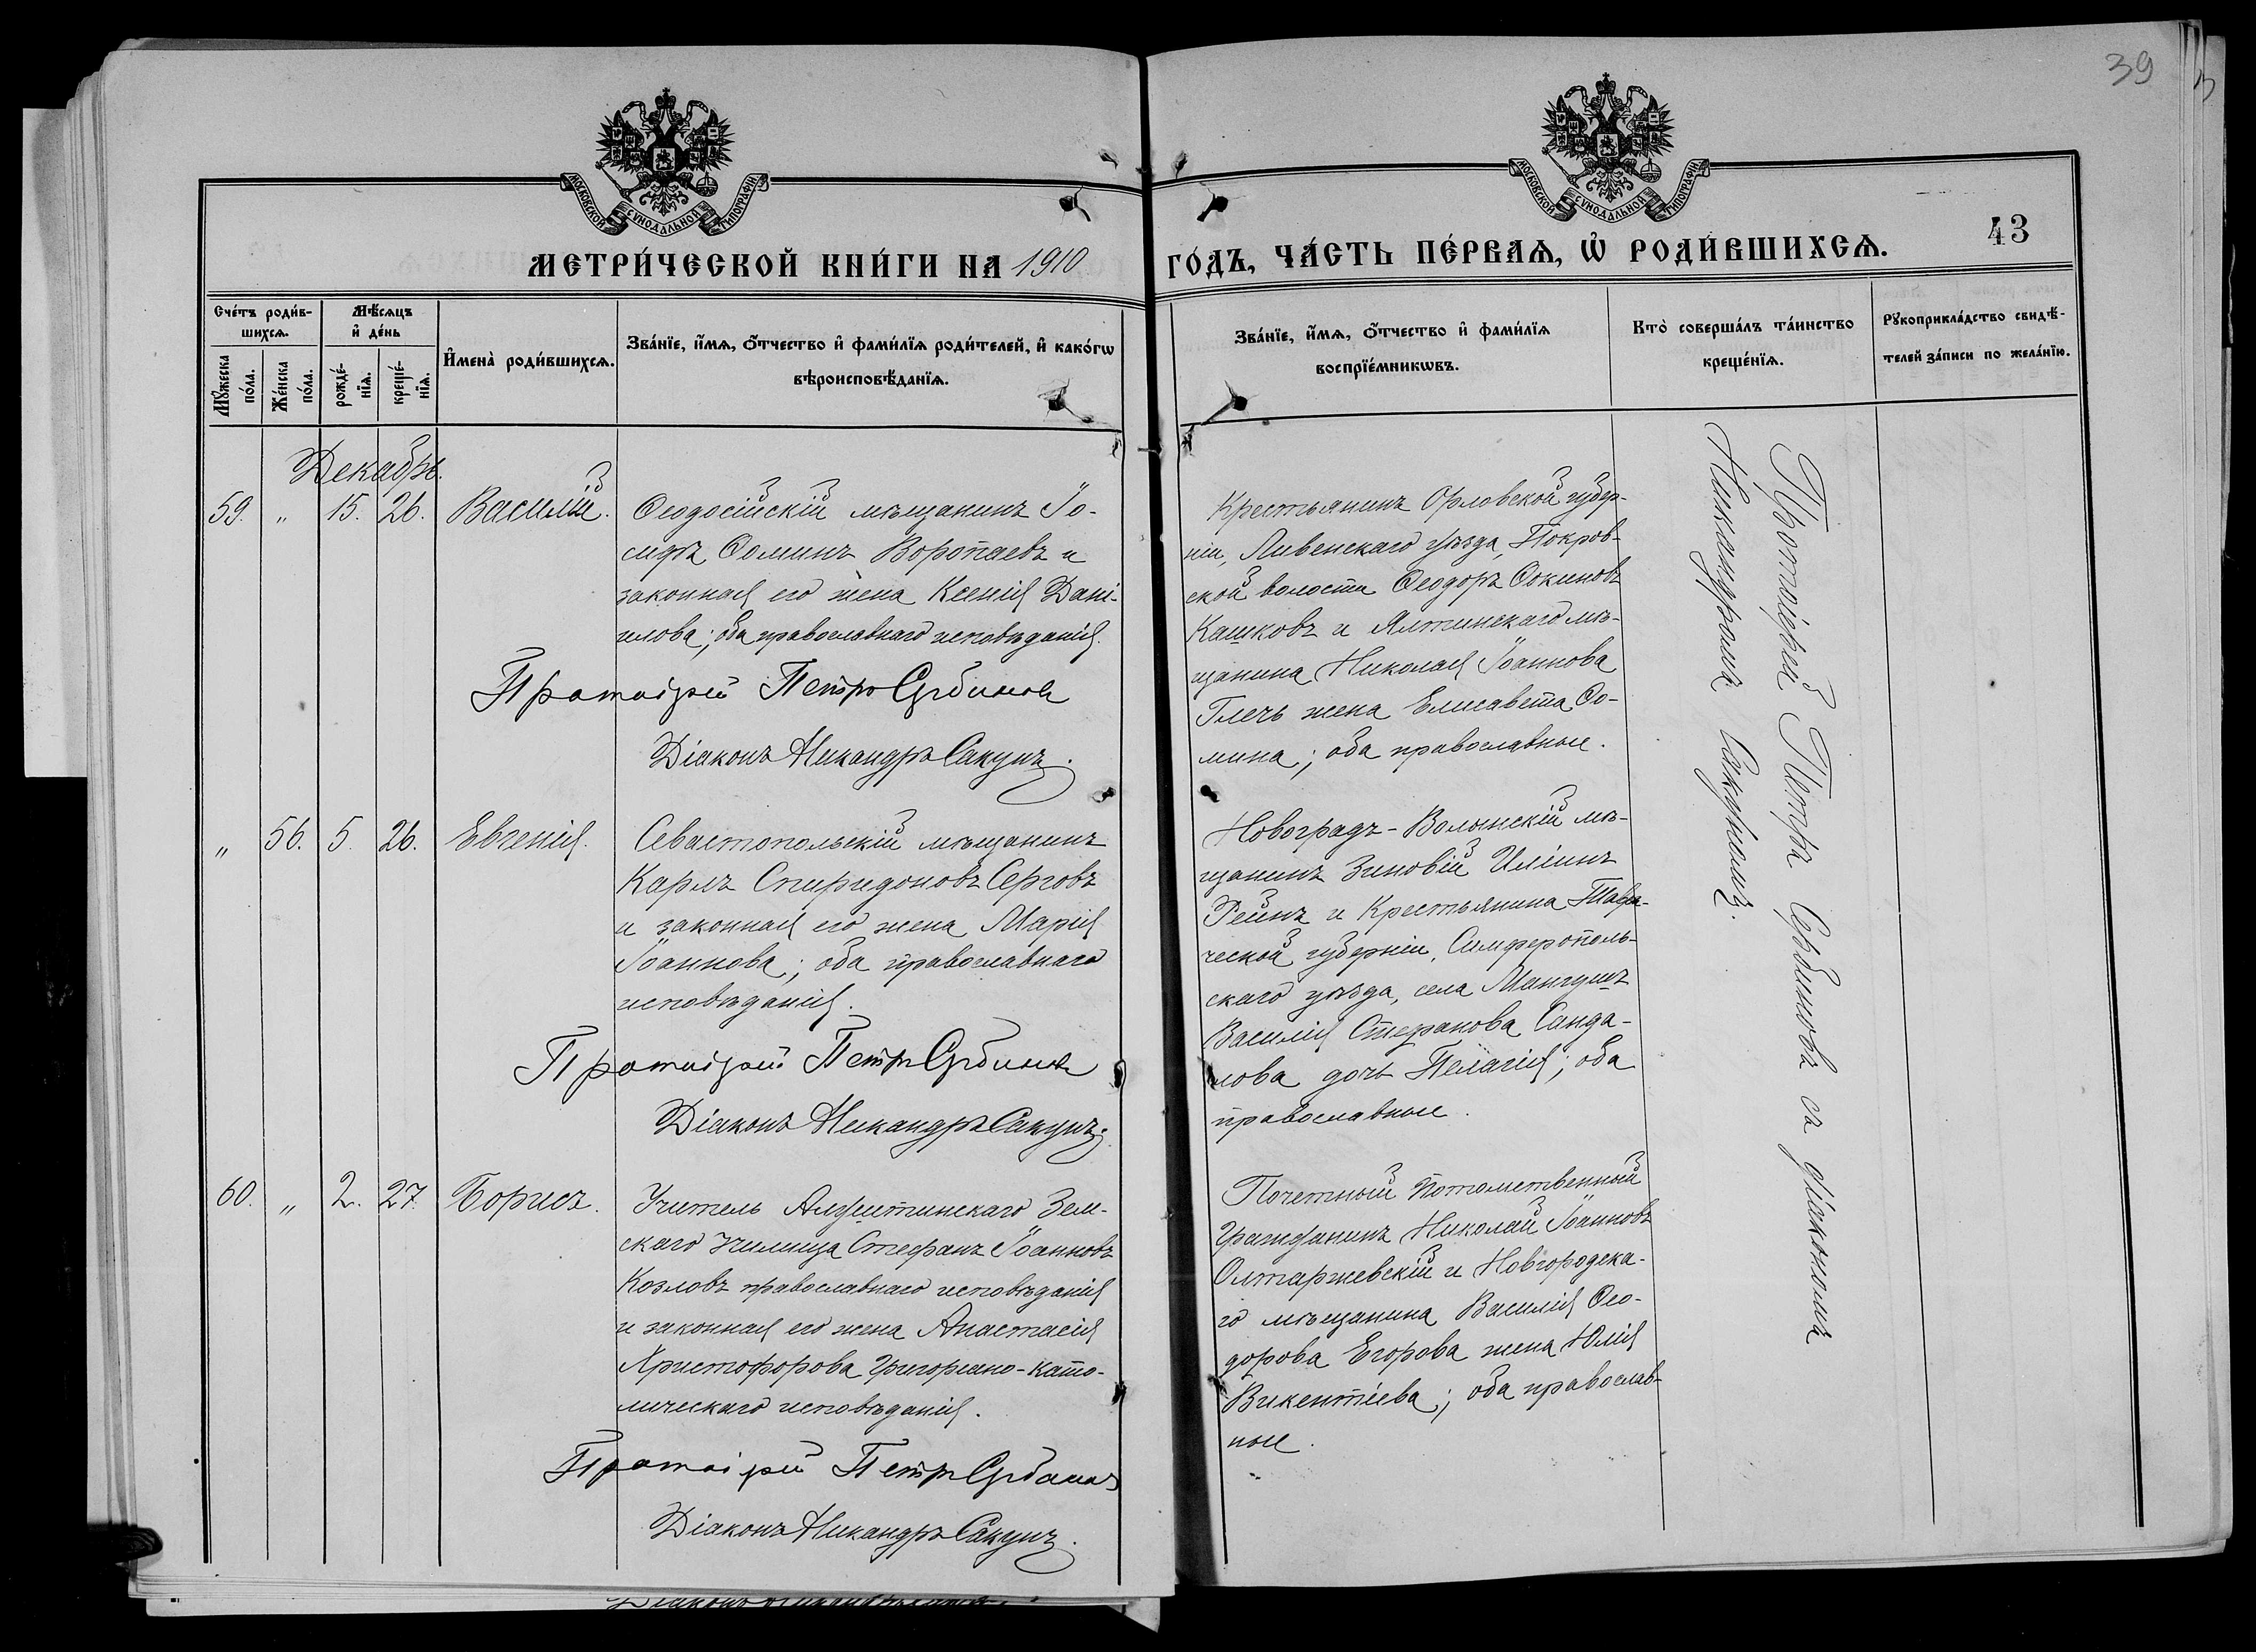 39
МОСКОВСКОЙ СѴНОДАЛЬНОЙ ТИПОГРАФІИ
МОСКОВСКОЙ СѴНОДАЛЬНОЙ ТИПОГРАФІИ
43
МЕТРИ́ЧЕСКОЙ КНИ́ГИ НА 1910
ГО́ДЪ, ЧА́СТЬ ПЕ́РВАѦ, Ѡ҆ РОДИ́ВШИХСѦ.
Сче́тъ роди́в-
шихсѧ.
Мꙋ́жеска по́ла.
Же́нска по́ла.
Мѣ́сѧцъ
и҆ де́нь
рожде́-
нїѧ.
креще́-
нїѧ.
И҆мена̀ роди́вшихсѧ.
Зва́нїе, и҆́мѧ, ѻ҆́тчество и҆ фами́лїѧ роди́телей, и҆ како́гѡ
вѣроисповѣ́данїѧ.
Зва́нїе, и҆́мѧ, ѻ҆́тчество и҆ фами́лїѧ
воспрїе́мникѡвъ.
Кто̀ соверша́лъ та́инство
креще́нїѧ.
Рꙋкоприкла́дство свидѣ́-
телей за́писи по жела́нїю.
Декабрь.
59. „ 15. 26. Василій.
Ѳеодосійскій мѣщанинъ Іо-
сифъ Ѳоминъ Воропаевъ и
законная его жена Ксенія Дані-
илова; оба православнаго исповѣданія.
Протоіерей Петръ Сербиновъ
Діаконъ Никандръ Сакунъ.
Крестьянинъ Орловской губер-
ніи, Ливенскаго уѣзда, Покров-
ской волости Ѳеодоръ Ѳокиновъ
Кашковъ и Ялтинскаго мѣ-
щанина Николая Іоаннова
Глечь жена Елисавета Ѳо-
мина; оба православные.
„ 56. 5. 26. Евгенія.
Севастопольскій мѣщанинъ
Карлъ Спиридоновъ Серговъ
и законная его жена Марія
Іоаннова; оба православнаго
исповѣданія.
Протоіерей Петръ Сербиновъ
Діаконъ Никандръ Сакунъ.
Новоградъ-Волынскій мѣ-
щанинъ Зиновій Иліинъ
Рейнъ и Крестьянина Таври-
ческой губерніи, Симферополь-
скаго уѣзда, села Мангушъ
Василія Стефанова Санда-
лова дочь Пелагія; оба
православные.
60. „ 2. 27. Борисъ.
Учитель Зем-
скаго Училища Стефанъ Іоанновъ
Козловъ православнаго исповѣданія
и законная его жена Анастасія
Христофорова Григоріано-като-
лическаго исповѣданія.
Протоіерей Петръ Сербиновъ
Діаконъ Никандръ Сакунъ.
Почетный Потомственный
Гражданинъ Николай Іоанновъ
Олтаржевскій и Новгородска-
го мѣщанина Василія Ѳео-
дорова Егорова жена Юлія
Викентіева; оба православ-
ные.
Протоіерей Петръ Сербиновъ съ діакономъ
Никандромъ Сакуномъ.